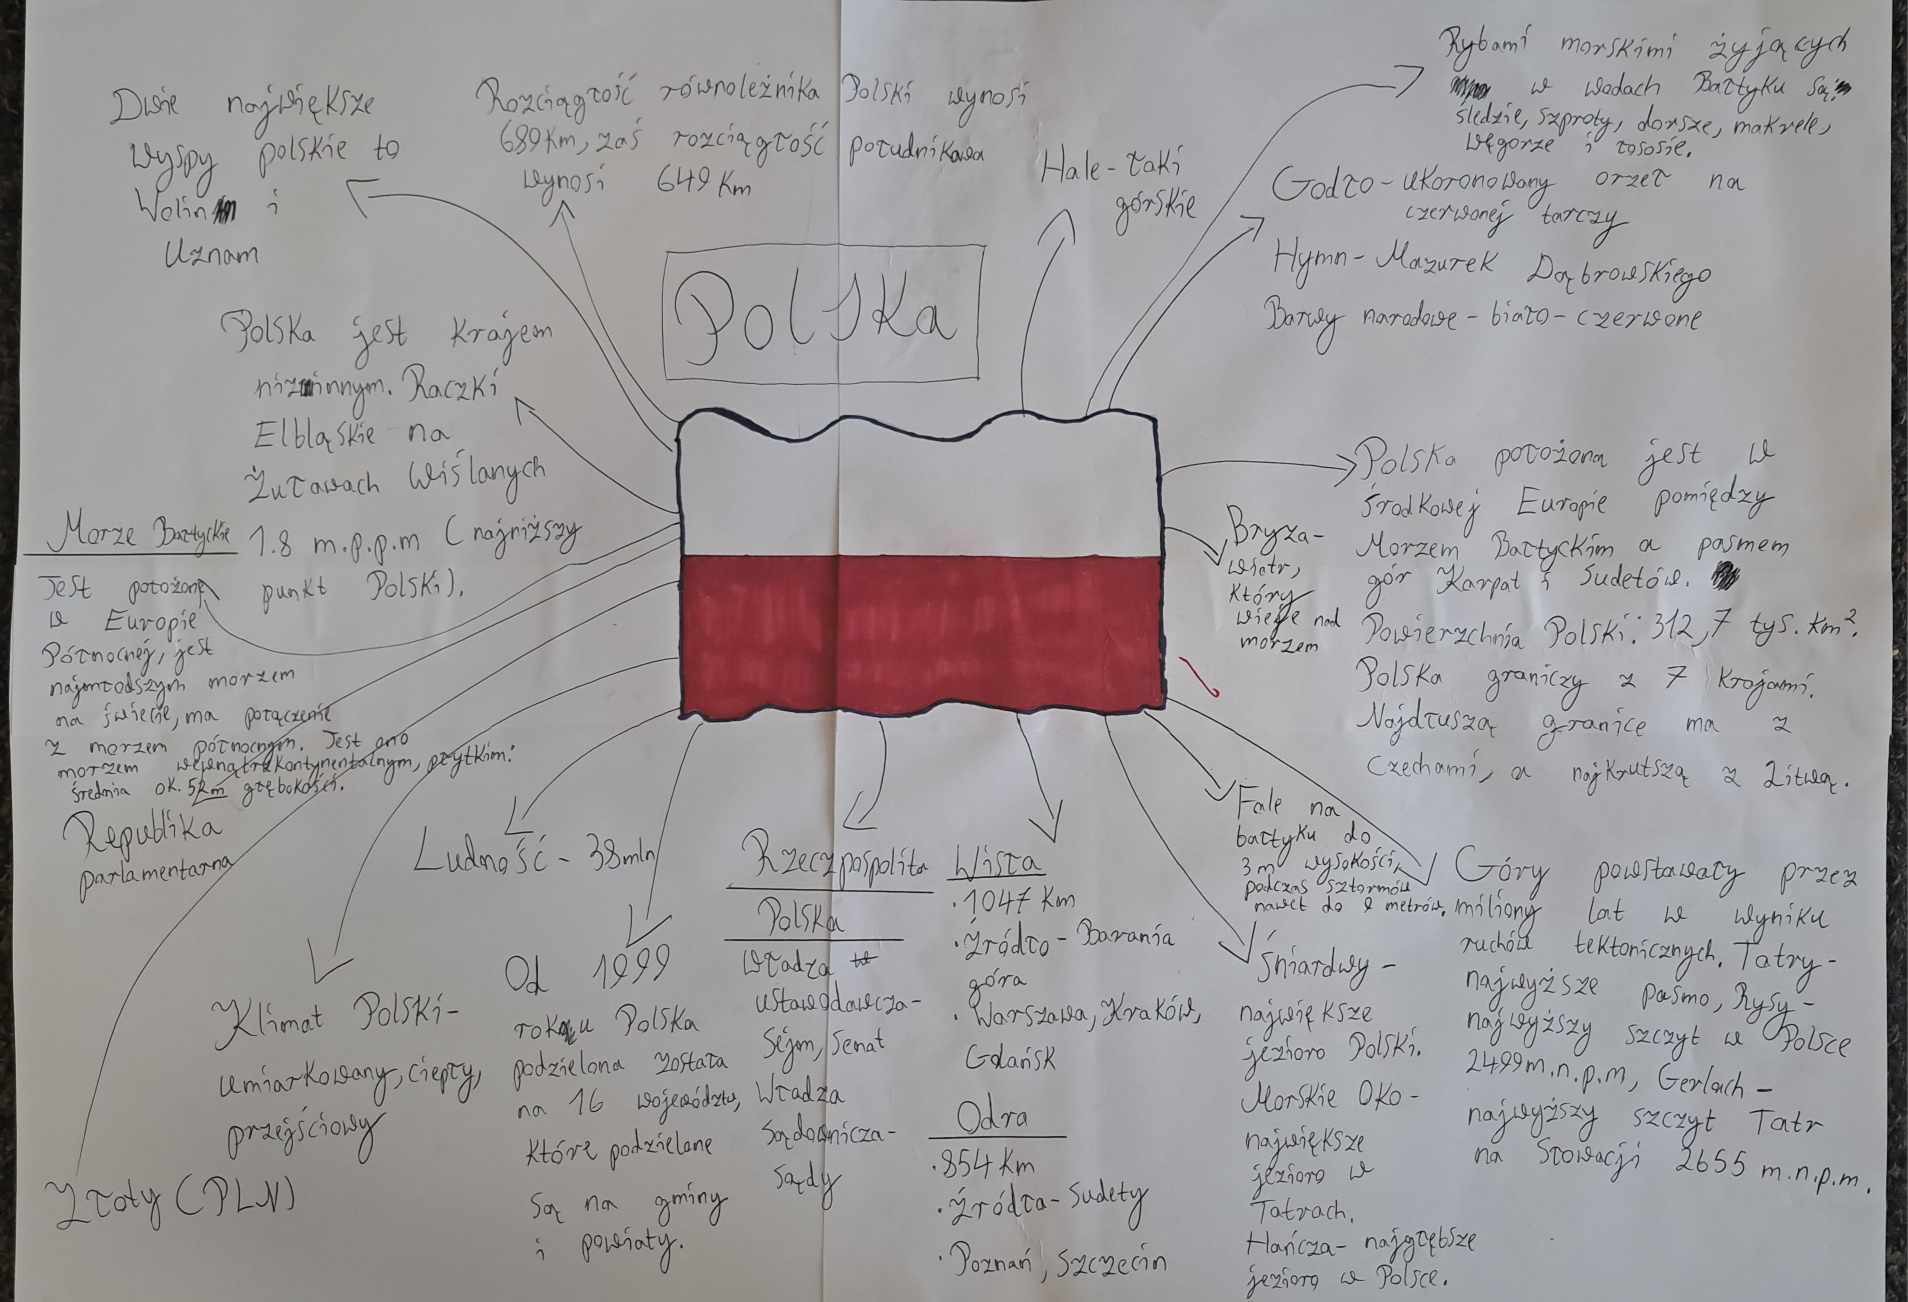 Polska
Dwie największe
wyspy polskie to
Wolin i
Uznam
Rozciągłość równoleżnika Polski wynosi
689km, zaś rozciągłość południkowa
wynosi 649 km
Hale-łąki
górskie
Rybami morskimi żyjących
w wodach Bałtyku są:
śledzie, szproty, dorsze, makrele,
węgorze i łososie.
Godło-ukoronowany orzeł na
czerwonej tarczy
Hymn-Mazurek Dąbrowskiego
Barwy narodowe-biało-czerwone
Polska jest krajem
nizinnym. Raczki
Elbląskie na
Żuławach Wiślanych
1.8 m.p.p.m (najniższy
punkt Polski).
Morze Bałtyckie
Jest położone
w Europie
Północnej, jest
najmłodszym morzem
na świecie, ma połączenie
z morzem północnym. Jest ono
morzem wewnątrzkontynentalnym, płytkim:
średnia ok. 52m głębokości.
Republika
parlamentarna
Złoty (PLN)
Klimat Polski-
umiarkowany, ciepły,
przejściowy
Ludność - 38mln
Od 1999
roku Polska
podzielona została
na 16 województw,
które podzielone
są na gminy
i powiaty.
Rzeczpospolita
Polska
władza
ustawodawcza-
Sejm, Senat
Władza
sądownicza-
sądy
Wisła
·1047 km
·Źródło-Barania
góra
·Warszawa, Kraków,
Gdańsk
Odra
·854 km
·Źródła-Sudety
·Poznań, Szczecin
Bryza-
wiatr,
który
wieje nad
morzem
Polska położona jest w
środkowej Europie pomiędzy
Morzem Bałtyckim a pasmem
gór Karpat i Sudetów.
Powierzchnia Polski: 312,7 tys. km².
Polska graniczy z 7 krajami.
Najdłuszą granice ma z
Czechami, a najkrutszą z Litwą.
Fale na
bałtyku do
3m wysokości,
podczas sztormów
nawet do 9 metrów.
Śniardwy-
największe
jezioro Polski.
Morskie Oko-
największe
jezioro w
Tatrach.
Hańcza-najgłębsze
jezioro w Polsce.
Góry powstawały przez
miliony lat w wyniku
ruchów tektonicznych. Tatry-
najwyższe pasmo, Rysy-
najwyższy szczyt w Polsce
2499m.n.p.m, Gerlach-
najwyższy szczyt Tatr
na Słowacji 2655 m.n.p.m.